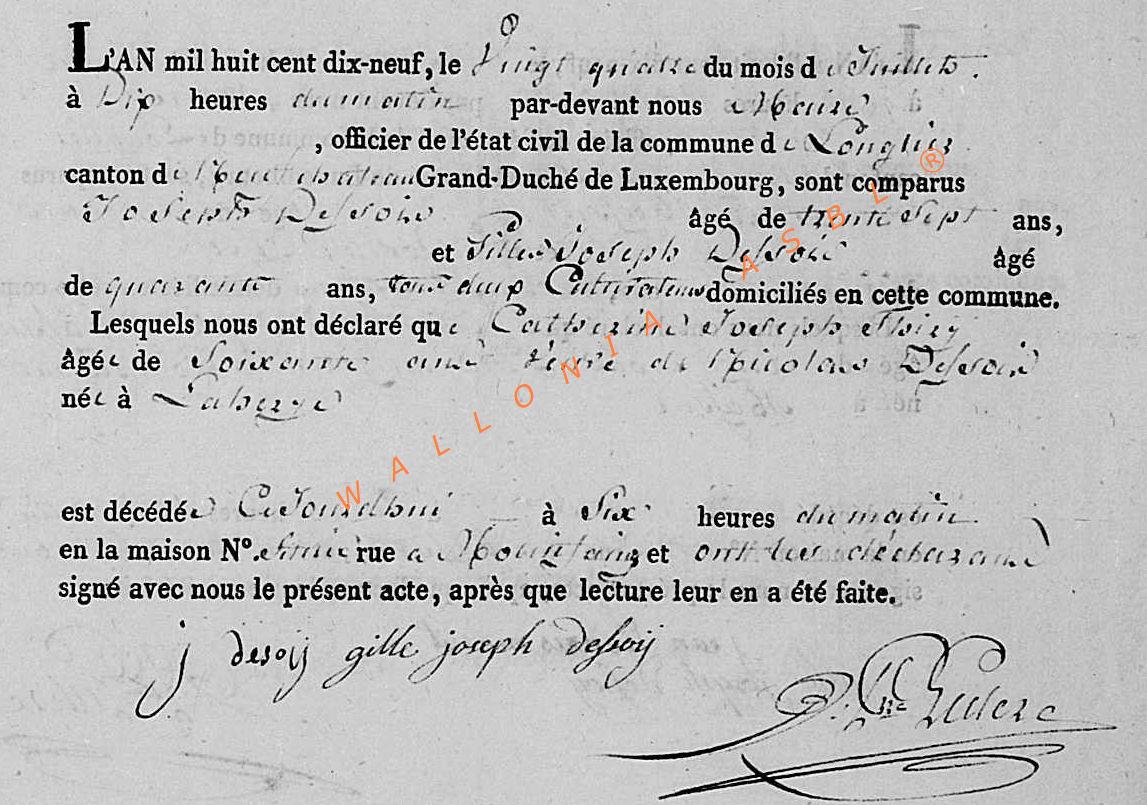 L'AN mil huit cent dix-neuf, le Vingt quatre du mois de Juillets.
à Dix heures du matin par-devant nous Maire
, officier de l'état civil de la commune de Longlier
canton de Neufchateau Grand-Duché de Luxembourg, sont comparus
Joseph Dessoie âgé de trente Sept ans,
et Gille Joseph Dessoie âgé
de quarante ans, tous deux Cultivateurs domiciliés en cette commune.
Lesquels nous ont déclaré que Catherine Joseph Thiry
âgée de Soixante ans veuve de Nicolas Dessoie
née à Laherie
est décédée Cejourdhui à Six heures du matin
en la maison N°. rue a et ont les déclarans
signé avec nous le présent acte, après que lecture leur en a été faite.
j desoij gille joseph dessoij
Leclere
WALLONIA ASBL ®